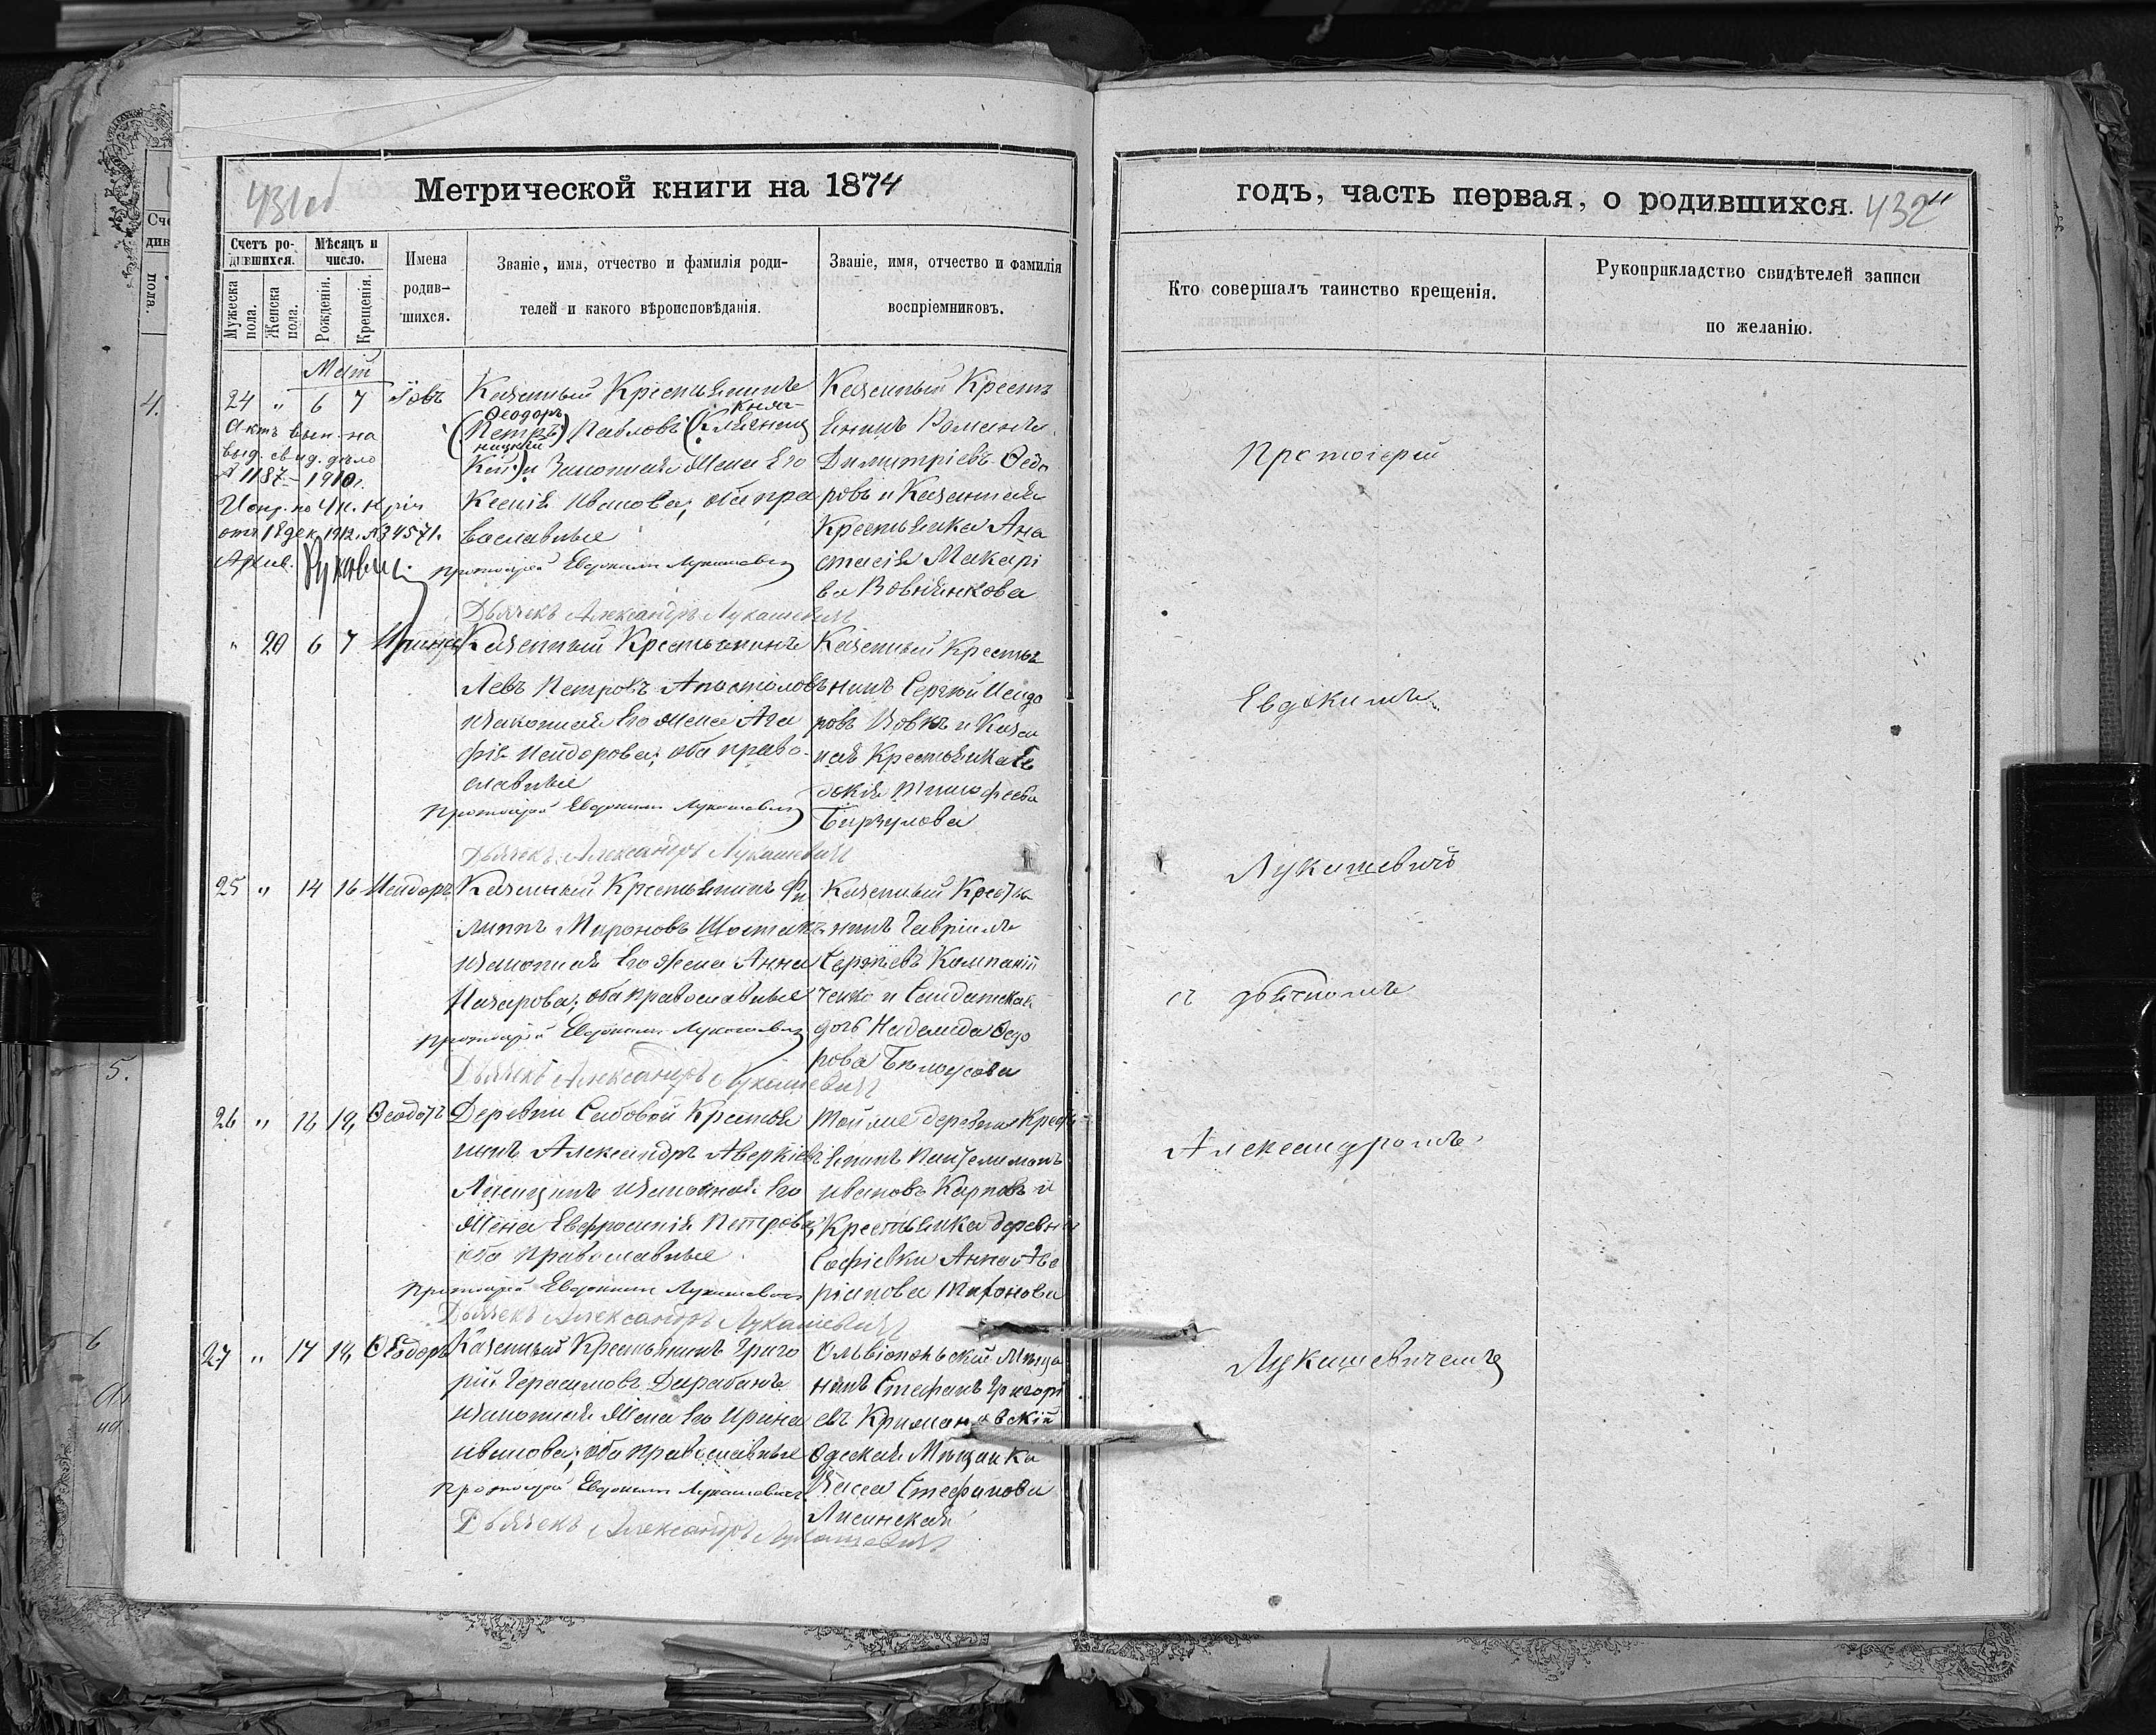 431об
Метрической книги на 1874
Счетъ ро-
дившихся.
Мѣсяцъ и
число.
Мужеска
пола.
Женска
пола.
Рожденія.
Крещенія.
Имена
родив-
шихся.
Званіе, имя, отчество и фамилія роди-
телей и какого вѣроисповѣданія.
Званіе, имя, отчество и фамилія
воспріемниковъ.
Май
24 " 6 7 Іовъ
Актъ вып. на
выд. свид. дѣло
№ 1187 - 1910 г.
отъ 18 дек. 1912. № 34571.
Казенный Крестьянинъ
Ѳеодоръ
(Петръ) Павловъ
кій) и Законная Жена Его
Ксенія Иванова, оба пра
вославные
Протоіерей Евдокимъ Лукашевич
Дьячекъ Александръ Лукашевичъ
Казенный Крестъ
янинъ Романъ
Димитріевъ Ѳедо
ровъ и Казенная
Крестьянка Ана
стасія Макарі
ва
" 20 6 7 Ирина
Казенный Крестьянинъ
Левъ Петровъ Апостоловъ
и законная Его Жена Ага
фія Исидорова; оба право-
славные
Протоіерей Евдокимъ Лукашевич
Дьячекъ Александръ Лукашевичъ
Казенный Крестья
нинъ Сергѣй Исидо
ровъ Вовкъ и Казен
ная Крестьянка Ев
докія Тимофеева
Бирзулова
25 " 14 16 Исидоръ
Казенный Крестьянинъ Фи
липпъ Мироновъ Шостакъ
и законная Его Жена Анна
Назарова; оба православные
Протоіерей Евдокимъ Лукашевич
Дьячекъ Александръ Лукашевичъ
Казенный Крестья
нинъ Гавріилъ
Сергѣевъ Компаній
ченко и Солдатская
дочь Надежда Ѳедо
рова Белоусова
26 " 18 19 Ѳеодоръ
Деревни Садовой Крестья
нинъ Александръ Аверкіевъ
Лисицинъ и законная Его
Жена Евфросинія Петрова,
оба православные
Протоіерей Евдокимъ Лукашевич
Дьячекъ Александръ Лукашевичъ
Той же деревни Кресть
янинъ Пантелимонъ
Ивановъ Карповъ и
Крестьянка деревни
Софіевки Анна Аве
ріянова
27 " 17 19 Ѳеодоръ
Казенный Крестьянинъ Григо
рій Герасимовъ Дарабанъ
и законная Жена Его Ирина
Иванова; оба православные
Протоіерей Евдокимъ Лукашевич
Дьячекъ Александръ Лукашевичъ
Ольвіопольскій Мѣща
нинъ Стефанъ Григорі
евъ Кримановскій
Одесская Мѣщанка
Стефанова
Лисинская
годъ, часть первая, о родившихся.
432
Кто совершалъ таинство крещенія.
Рукоприкладство свидѣтелей записи
по желанію.
Протоіерей
Евдокимъ
Лукашевичъ
съ дьячкомъ
Александромъ
Лукашевичемъ